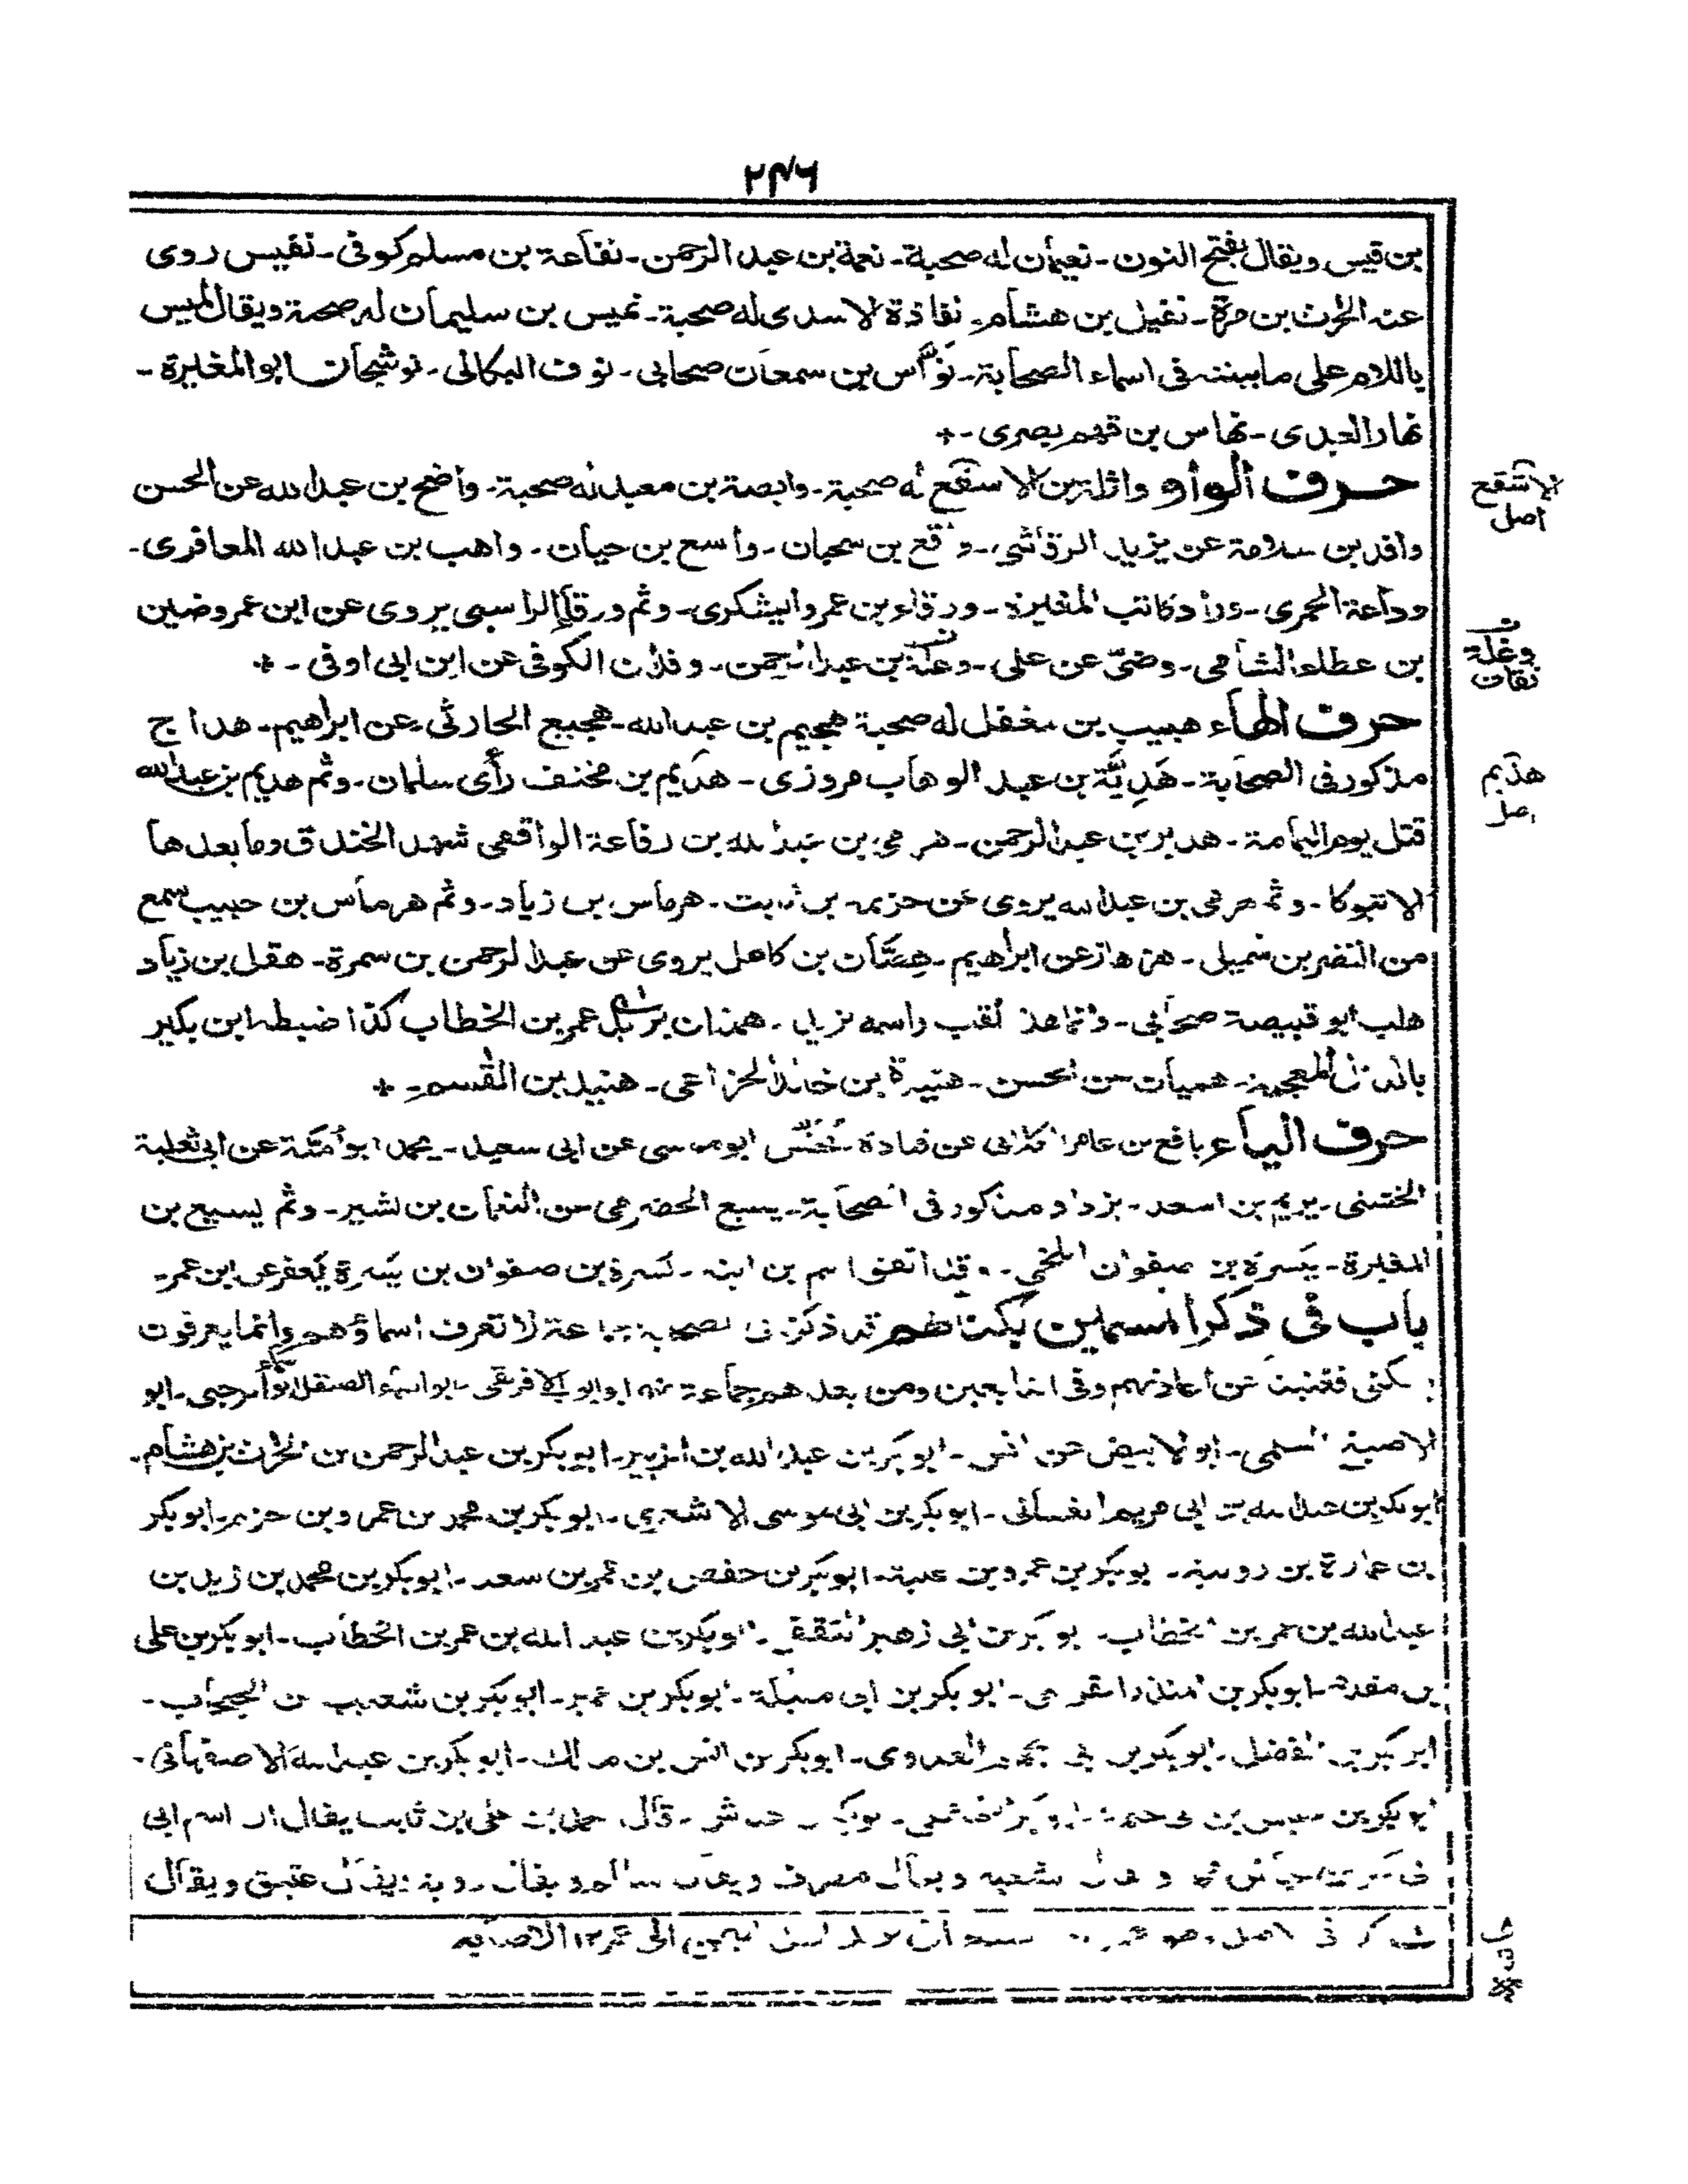 ۲۴۶
بن قيس ويقال بفتح النون - نعيمان له صحبة - نعمة بن عبد الرحمن - نفاعة بن مسلم كوفى - نفيس روى
عنه الحرث بن مرة - نفيل بن هشام - نقادة الاسدى له صحبة - نميس بن سليمان له صحبة ويقال لميس
باللام على ما بينته فى اسماء الصحابة - نوّاس بن سمعان صحابى - نوف البكالى - نوشجان ابو المغيرة -
نهار العبدى - نهاس بن قهم بصرى - +
حرف الواو واثلة بن الاسقع له صحبة - وابصة بن معبد له صحبة - واضح بن عبد الله عن الحسن
واقد بن سلامة عن يزيد الرقاشى - واقع بن سحبان - واسع بن حيان - واهب بن عبد الله المعافرى -
وداعة الحجرى - وراد كاتب المغيرة - ورقاء بن عمرو اليشكرى - وثم ورقاء الراسبى يروى عن ابن عمر وضين
بن عطاء الشامى - وضىّ عن على - وعلة بن عبد الرحمن - وفلان الكوفى عن ابن ابى اوفى - +
حرف الهاء هبيب بن مغفل له صحبة هجيم بن عبد الله - هجيع الحارثى عن ابراهيم - هداج
مذكور فى الصحابة - هَدِيَّة بن عبد الوهاب مروزى - هديم بن مخنف رأى سلمان - وثم هديم بن عبد الله
قتل يوم اليمامة - هدير بن عبد الرحمن - هرمى بن عبد الله بن رفاعة الواقفى شهد الخندق وما بعدها
الا تبوكا - وثم هرمى بن عبد الله يروى عن خزيمة بن ثابت - هرماس بن زياد - وثم هرماس بن حبيب سمع
من النضر بن شميل - هزهاز عن ابراهيم - هِصَّان بن كاهل يروى عن عبد الرحمن بن سمرة - هقل بن زياد
هلب ابو قبيصة صحابى - وانما هذا لقب واسمه يزيد - همذان بريد عمر بن الخطاب كذا ضبطه ابن بكير
بالذال المعجمة - هميان عن الحسن - هنيدة بن خالد الخزاعى - هنيد بن القسم - +
حرف الياء يافع بن عامر عن قتادة - يُحَنَّس ابو موسى عن ابى سعيد - يحمد ابو امية عن ابى ثعلبة
الخشنى - يريم بن اسعد - يزداد مذكور فى الصحابة - يسيع الحضرمى عن النعمان بن بشير - وثم يسيع بن
المغيرة - يَسَرة بن صفوان اللخمى - وقد اتفق اسم بن ابنه - يسرة بن صفوان بن يسرة يعفر عن ابن عمر -
باب فى ذكر المسمين بكناهم قد ذكرنا فى الصحابة جماعة لا تعرف اسماؤهم وانما يعرفون
بكنى فغنيت عن اعادتهم وفى التابعين ومن بعدهم جماعة منهم ابو ايوب الافريقى - ابو ابو
الاصبغ السلمى - ابو الابيض عن انس - ابو بكر بن عبد الله بن الزبير - ابو بكر بن عبد الرحمن بن الحرث بن هشام -
ابو بكر بن عبد الله بن ابى مريم الغسانى - ابو بكر بن ابى موسى الاشعرى - ابو بكر بن محمد بن عمرو بن حزم - ابو بكر
بن عمارة بن رويبة - ابو بكر بن عمرو بن عتبة - ابو بكر بن حفص بن عمر بن سعد - ابو بكر بن محمد بن زيد بن
عبد الله بن عمر بن الخطاب - ابو بكر بن ابى زهير الثقفى - ابو بكر بن عبد الله بن عمر بن الخطاب - ابو بكر بن على
بن مقدم - ابو بكر بن المنذر - ابو بكر بن ابى سبرة - ابو بكر بن عمير - ابو بكر بن شعيب بن الحبحاب -
ابو بكر بن الفضل - ابو بكر بن ابى جهم العدوى - ابو بكر بن انس بن مالك - ابو بكر بن عبد الله الاصفهانى -
ابو بكر بن ابى حثمة - ابو بكر - قال بن على بن ثابت يقال ان اسم ابى
شعبة ويقال مطرف ويقال سالم ويقال روبة ويقال عتيق ويقال
الى عمر ١٢ الاصابه
الاسقع
اصل
وعلة
ثقات
هذيم
اصل